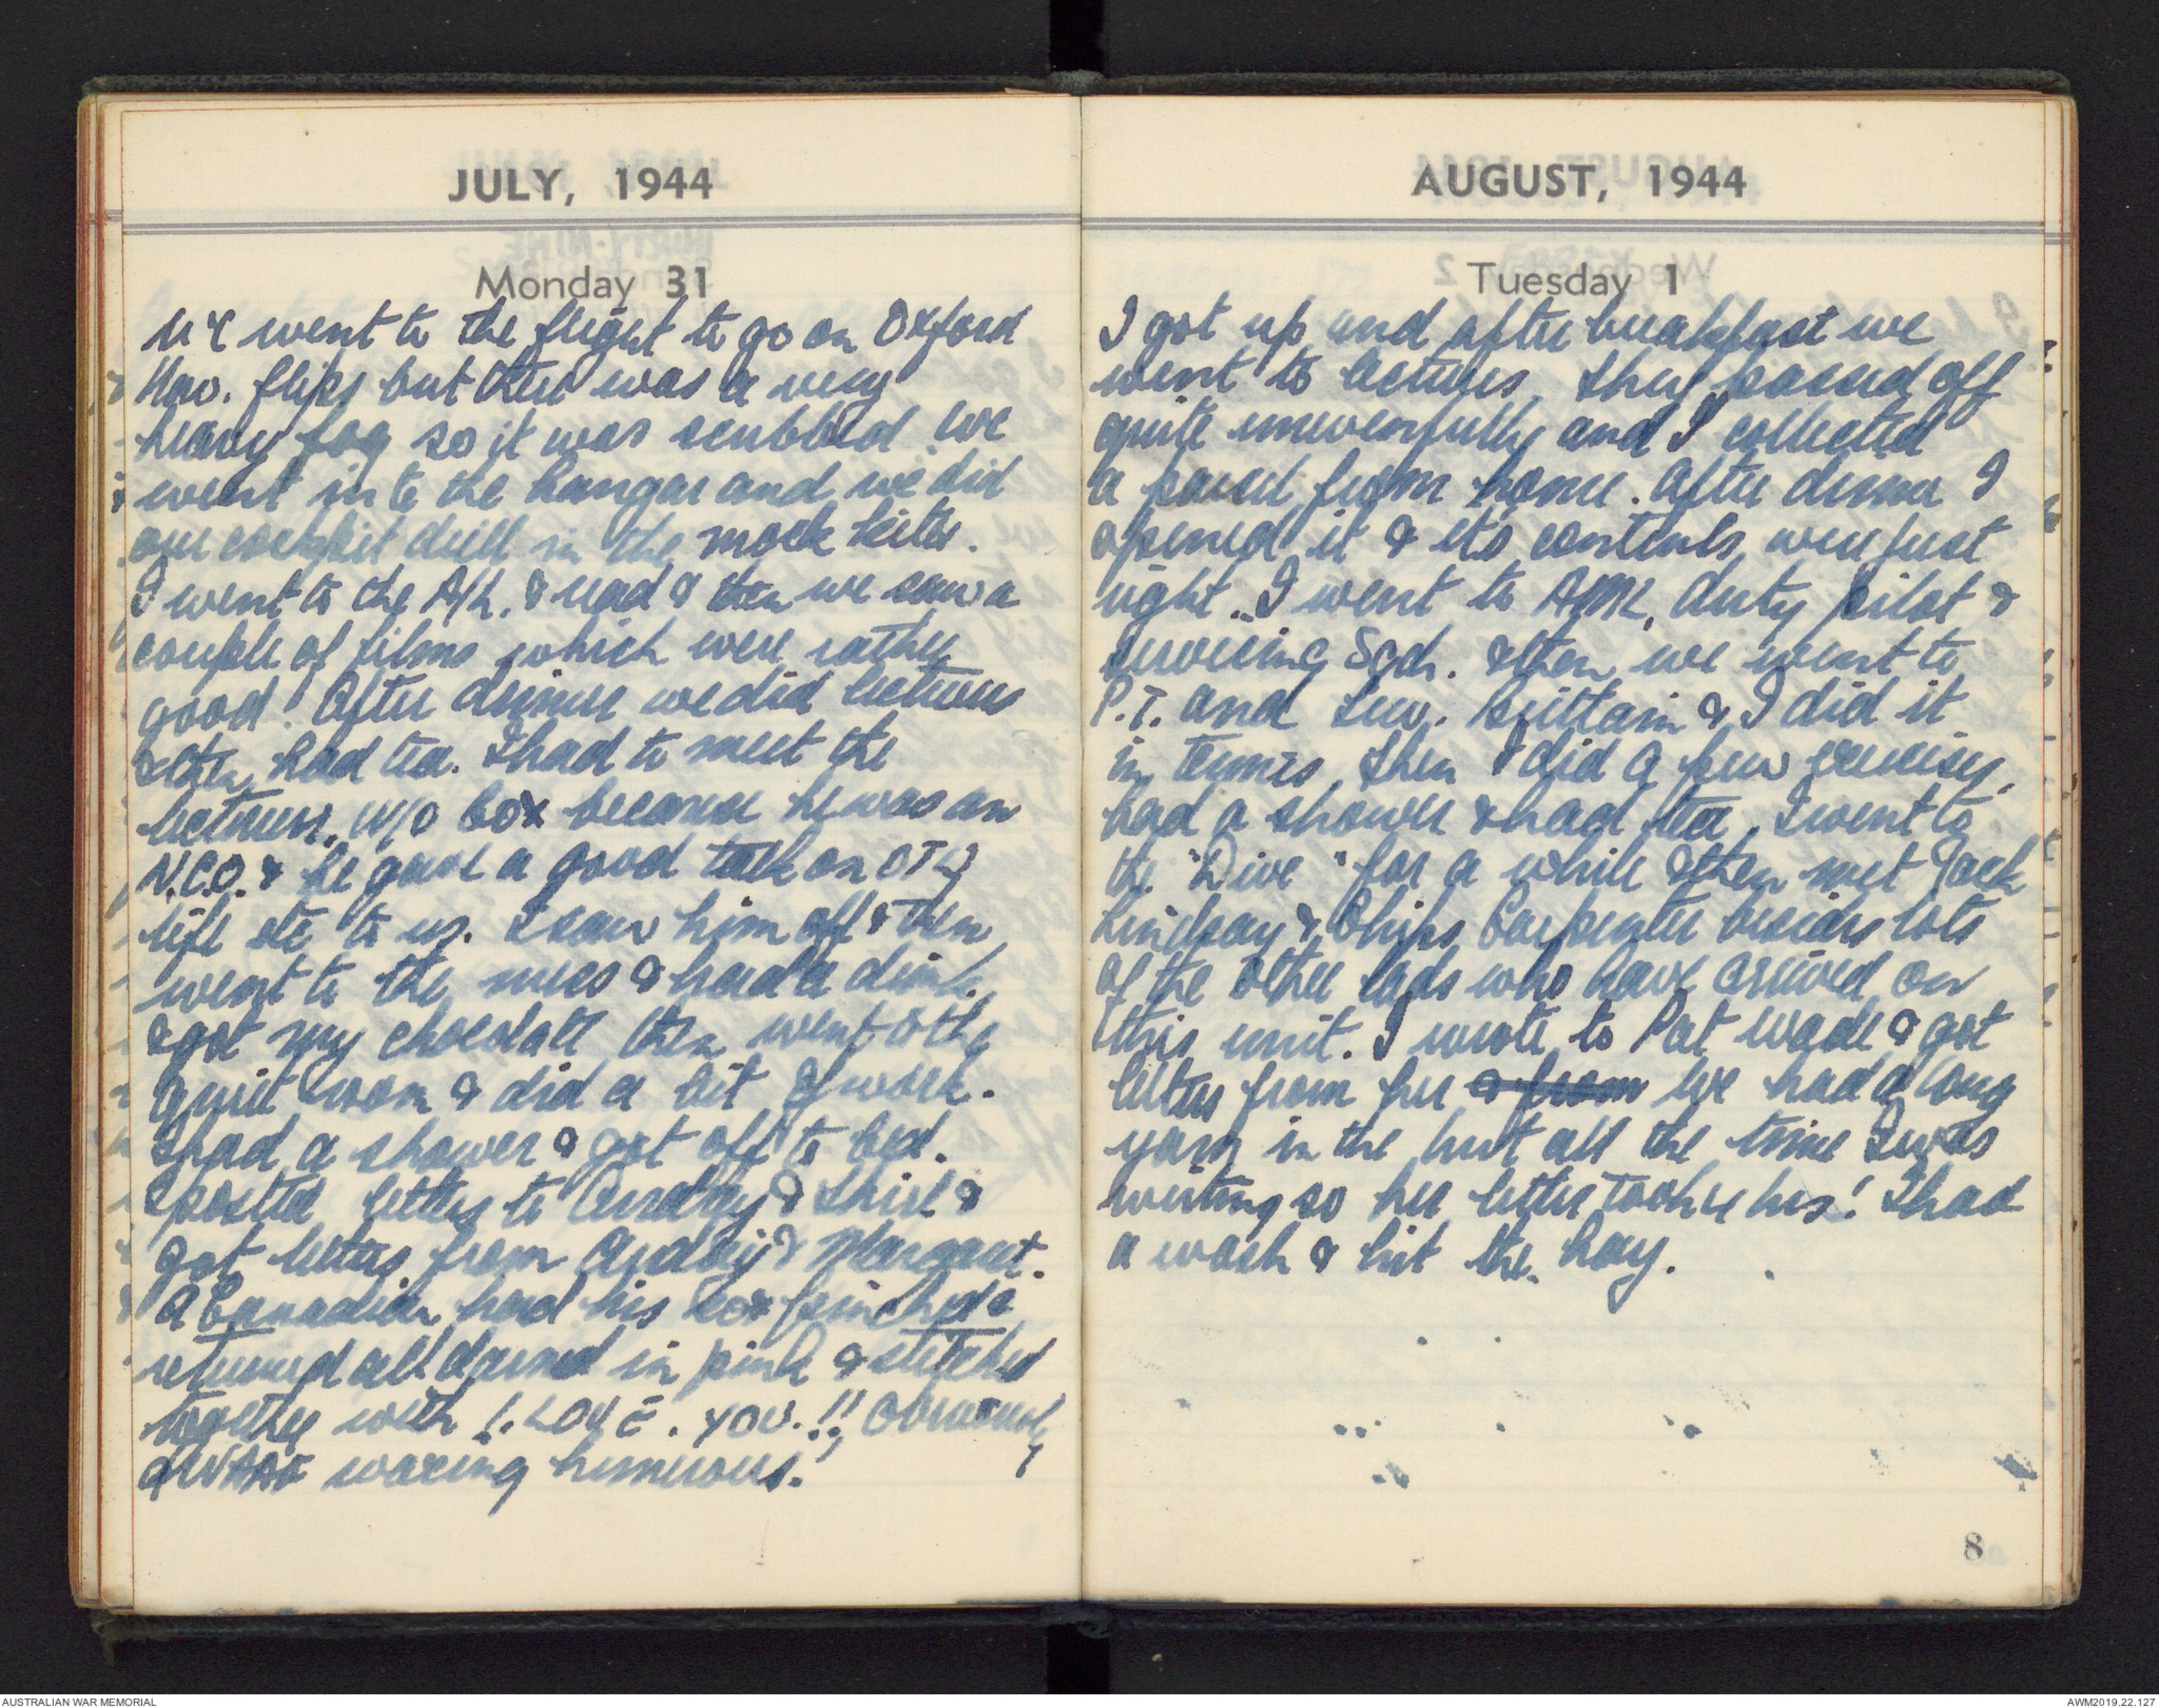 JULY, 1944
Monday 31
We went to the flight to go on Oxford
Nav. flips but there was a very
heavy fog so it was scrubbed. We
went into the hangar and we did
our cockpit drill in the mock kites.
I went to the A/L. & read & then we saw a
couple of films which were rather
good! After dinner we did lectures
& then had tea. I had to meet the
lecturer. W/O Cox because he was an
N.C.O. & he gave a good talk on OTU
life etc to us. I saw him off & then
went to the mess & had a drink
& got my chocolate then went to the
quiet room & did a bit of work.
I had a shower & got off to bed.
I posted letters to Audrey & Shirl &
got letters from Audrey & Margaret.
A Canadian had his sox pinched &
returned all darned in pink & stitched
together with !. LOVE. YOU.!! Obviously
a WAAF waxing humerous!
AUGUST, 1944
Tuesday 1
I got up and after breakfast we
went to lectures. They passed off
quite unevenfully and I collected
a parcel from home. After dinner I
opened it & its contents were just
right. I went to AML, duty pilot &
servicing Sqdn. & then we went to
P.T. and Lew. Brittain & I did it
in tennis, then I did a few exercises,
had a shower & had tea, I went to
the "Dive" for a while & then met Jack
Lindsay & Chips Carpenter besides lots
of the other lads who have arrived on
this unit. I wrote to Pat Wade & got
letters from her & from We had a long
yarn in the hut all the time I was
writing so her letter took hrs! I had
a wash & hit the hay.
8
AUSTRALIAN WAR MEMORIAL
AWM2019.22.127